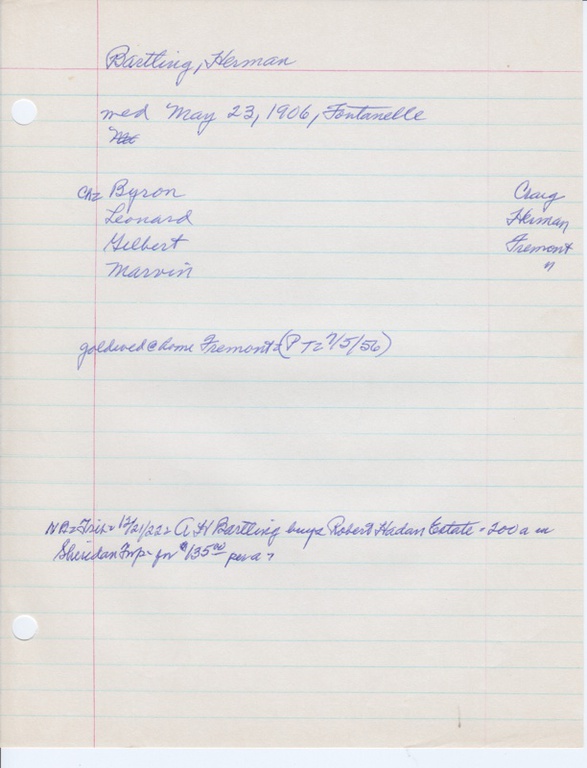 Bartling, Herman
wed May 23, 1906, Fontanelle
Ch= Byron Craig
Leonard Herman
Gilbert Fremont
Marvin "
goldwed @ home Fremont= (PT= 7/5/56)
NB= Trib= 12/21/22= A H Bartling buys Robert Hadan Estate - 200 a in
Sheridan Twp= for $135.00 per a